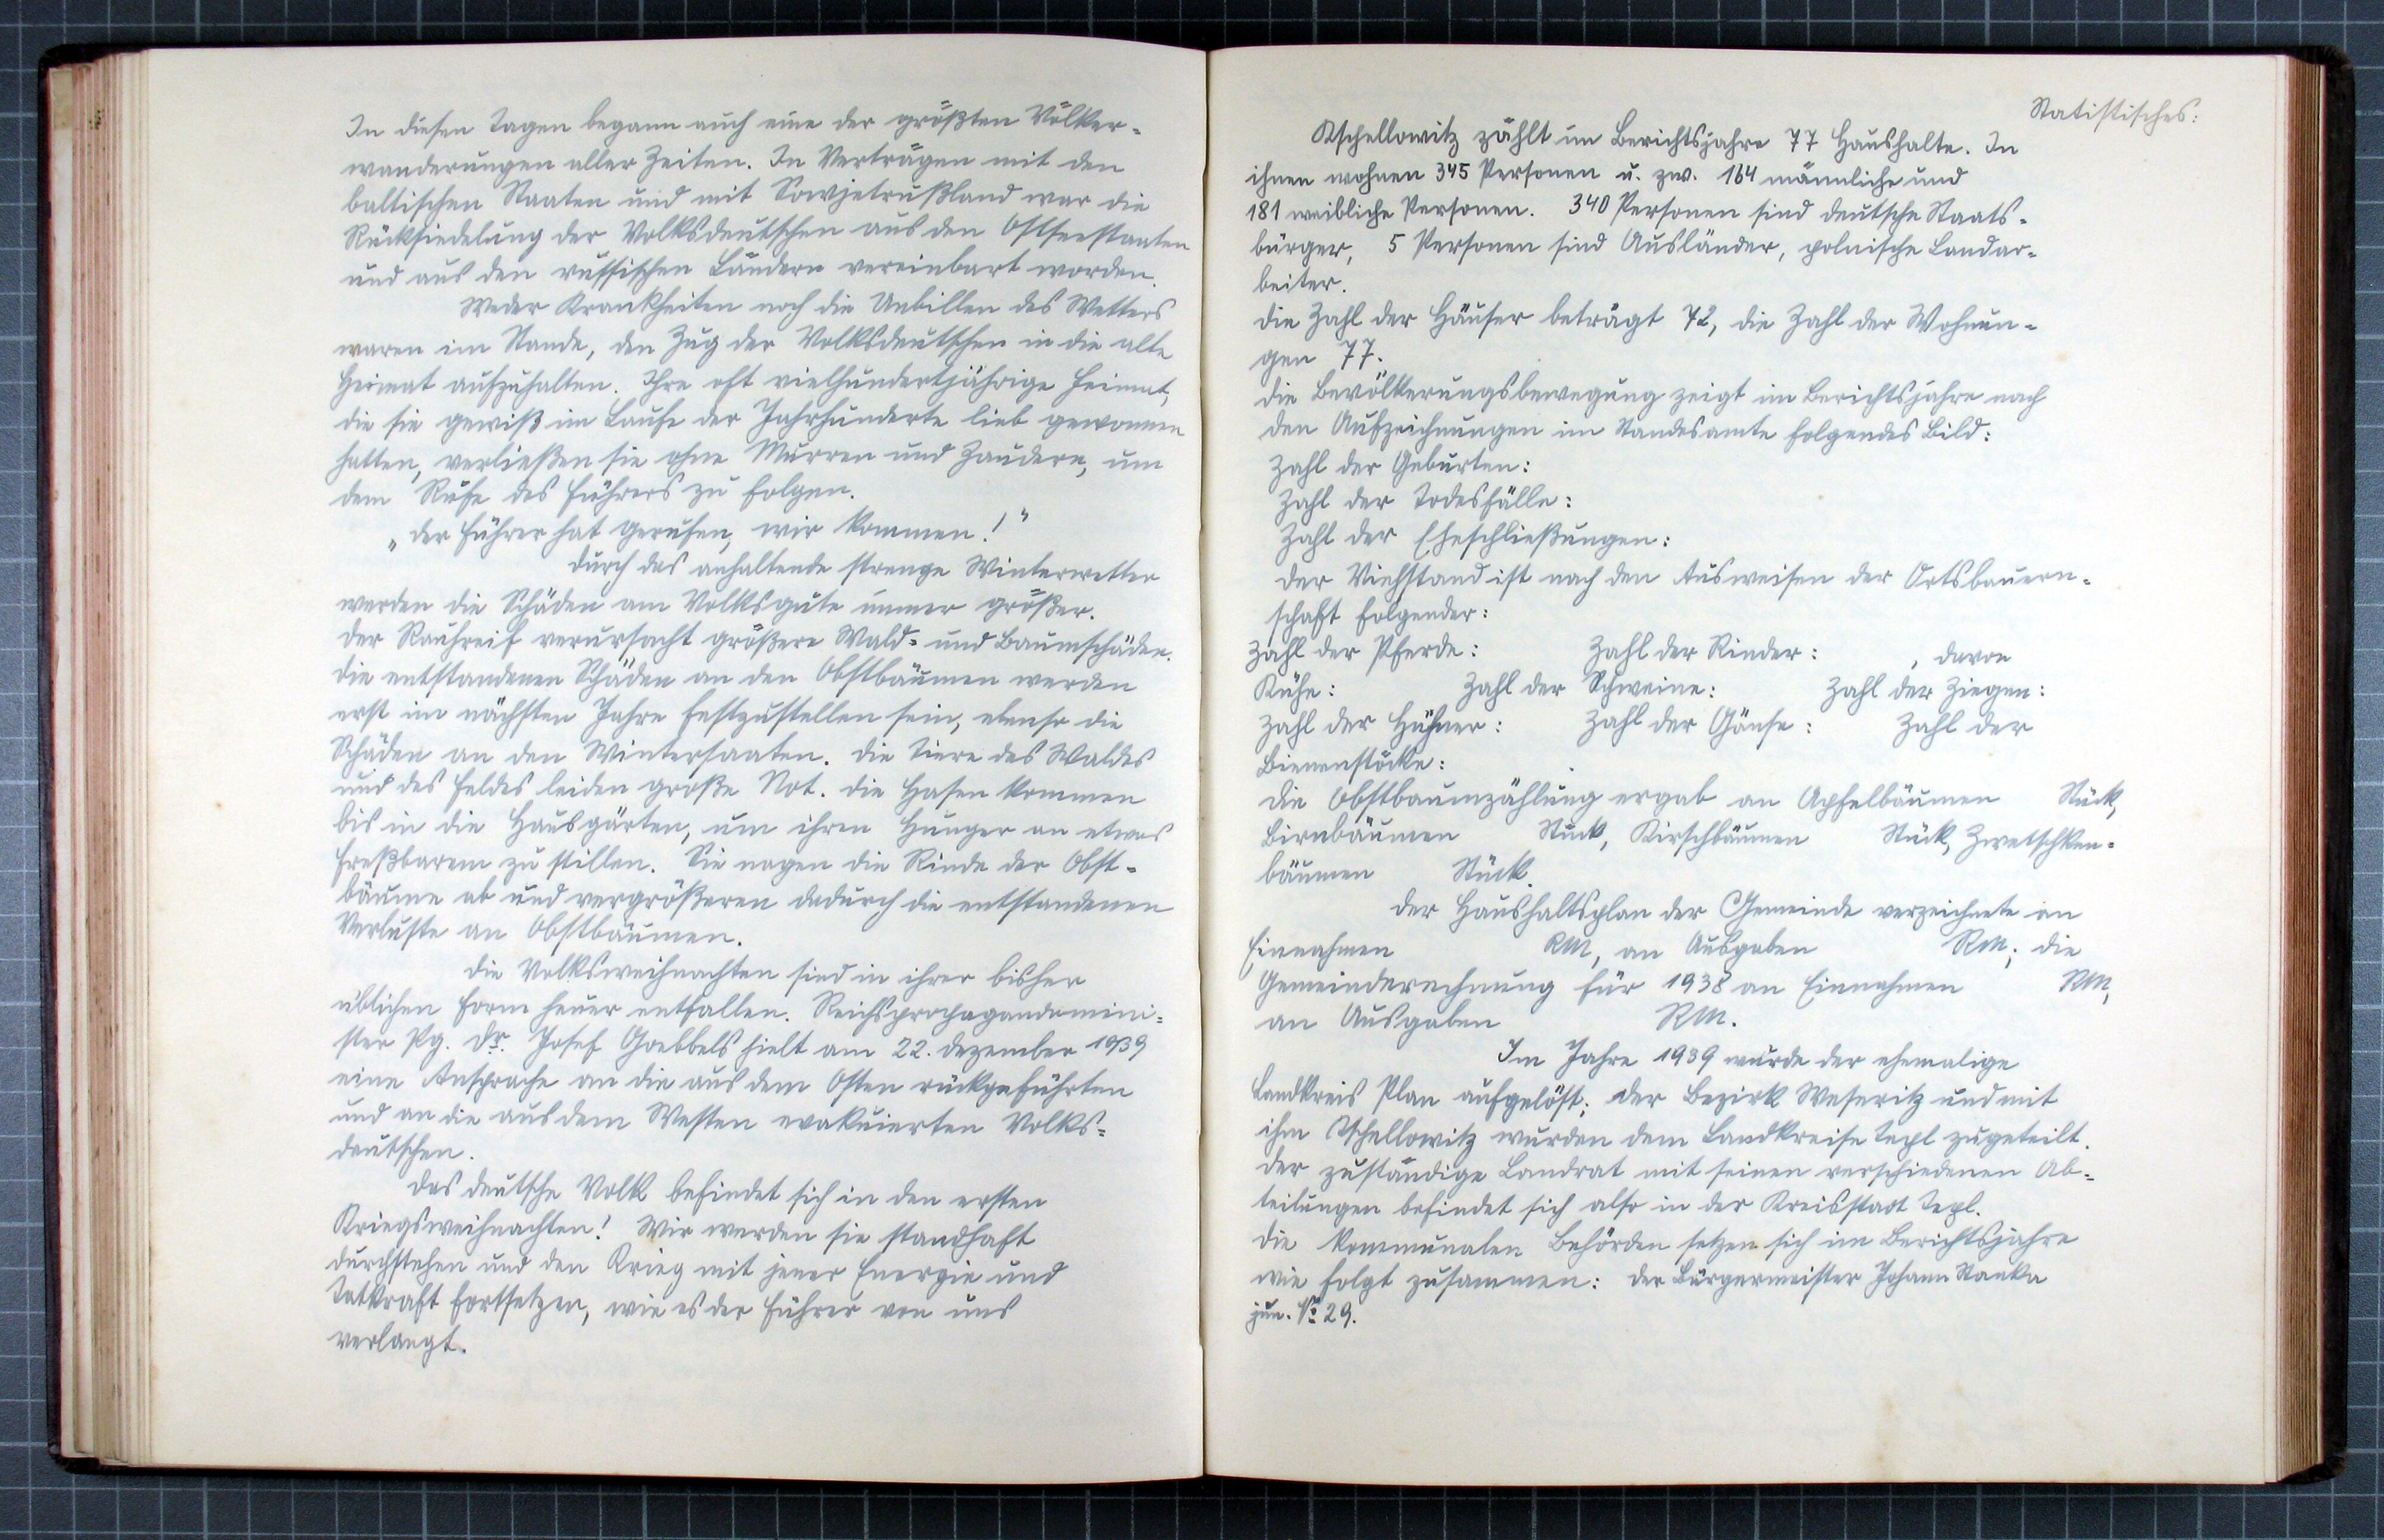 In diesen Tagen begann auch eine der größten Völker-
wanderungen aller Zeiten. In Verträgen mit den
baltischen Staaten und mit Sowjetrußland war die
Rücksiedelung der Volksdeutschen aus den Ostseestaaten
und aus den russischen Ländern vereinbart worden.
Weder Krankheiten noch die Unbillen des Wetters
waren im Stande, den Zug der Volksdeutschen in die alte
Heimat aufzuhalten. Ihre oft vielhundertjährige Heimat,
die sie gewiß im Laufe der Jahrhunderte lieb gewonnen
hatten, verließen sie ohne Murren und Zaudern, um
dem Rufe des Führers zu folgen.
„Der Führer hat gerufen, wir kommen!"
Durch das anhaltende strenge Winterwetter
werden die Schäden am Volksgute immer größer.
Der Rauhreif verursacht größere Wald- und Baumschäden.
Die entstandenen Schäden an den Obstbäumen werden
erst im nächsten Jahre festzustellen sein, ebenso die
Schäden an den Wintersaaten. Die Tiere des Waldes
und des Feldes leiden große Not. Die Hasen kommen
bis in die Hausgärten, um ihren Hunger an etwas
Freßbarem zu stillen. Sie nagen die Rinde der Obst-
bäume ab und vergrößeren dadurch die entstandenen
Verluste an Obstbäumen.
Die Volksweihnachten sind in ihrer bisher
üblichen Form heuer entfallen. Reichspropagandamini-
ster Pg. Dr. Josef Goebbels hielt am 22. Dezember 1939
eine Ansprache an die aus dem Osten rückgeführten
und an die aus dem Westen evakuierten Volks-
deutschen.
Das deutsche Volk befindet sich in den ersten
Kriegsweihnachten! Wir werden sie standhaft
durchstehen und den Krieg mit jener Energie und
Tatkraft fortsetzen, wie es der Führer von uns
verlangt.
Statistisches:
Tschellowitz zählt im Berichtsjahre 77 Haushalte. In
ihnen wohnen 345 Personen u. zw. 164 männliche und
181 weibliche Personen. 340 Personen sind deutsche Staats-
bürger, 5 Personen sind Ausländer, polnische Landar-
beiter.
Die Zahl der Häuser beträgt 72, die Zahl der Wohnun-
gen 77.
Die Bevölkerungsbewegung zeigt im Berichtsjahre nach
den Aufzeichnungen im Standesamte folgendes Bild:
Zahl der Geburten:
Zahl der Todesfälle:
Zahl der Eheschließungen:
Der Viehstand ist nach den Ausweisen der Ortsbauern-
schaft folgender:
Zahl der Pferde: Zahl der Rinder: , davon
Kühe: Zahl der Schweine: Zahl der Ziegen:
Zahl der Hühner: Zahl der Gänse: Zahl der
Bienenstöcke:
Die Obstbaumzählung ergab an Apfelbäumen Stück,
Birnbäumen Stück, Kirschbäumen Stück, Zwetschken-
bäumen Stück.
Der Haushaltsplan der Gemeinde verzeichnete an
Einnahmen RM, an Ausgaben RM; die
Gemeinderechnung für 1938 an Einnahmen RM,
an Ausgaben RM.
Im Jahre 1939 wurde der ehemalige
Landkreis Plan aufgelöst; der Bezirk Weseritz und mit
ihm Tschellowitz wurden dem Landkreise Tepl zugeteilt.
Der zuständige Landrat mit seinen verschiedenen Ab-
teilungen befindet sich also in der Kreisstadt Tepl.
Die kommunalen Behörden setzen sich im Berichtsjahre
wie folgt zusammen: Der Bürgermeister Johann Stanka
jun. No 29.